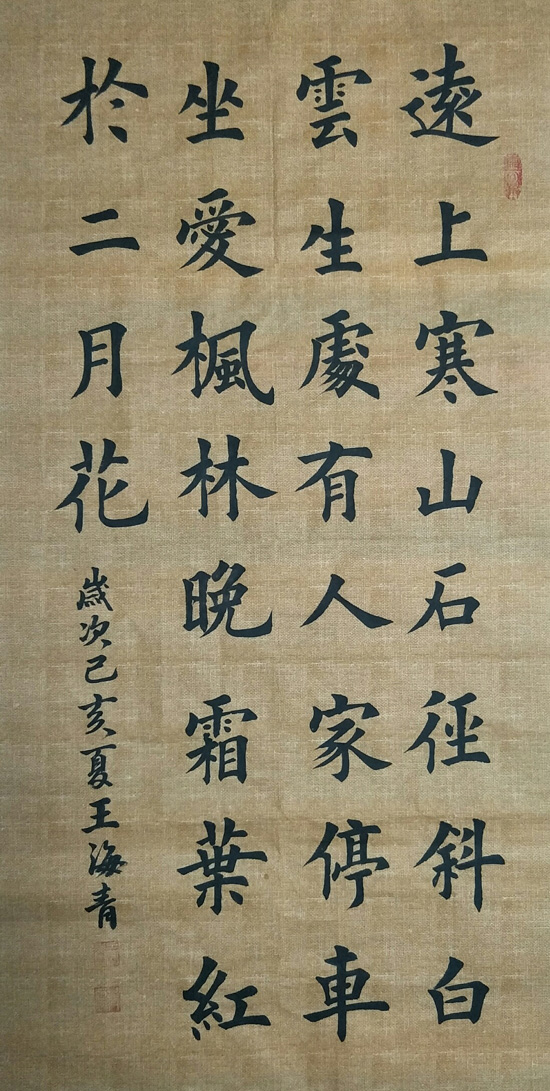 遠上寒山石徑斜白
雲生處有人家停車
坐愛楓林晚霜葉紅
於二月花
歲次己亥夏王海青